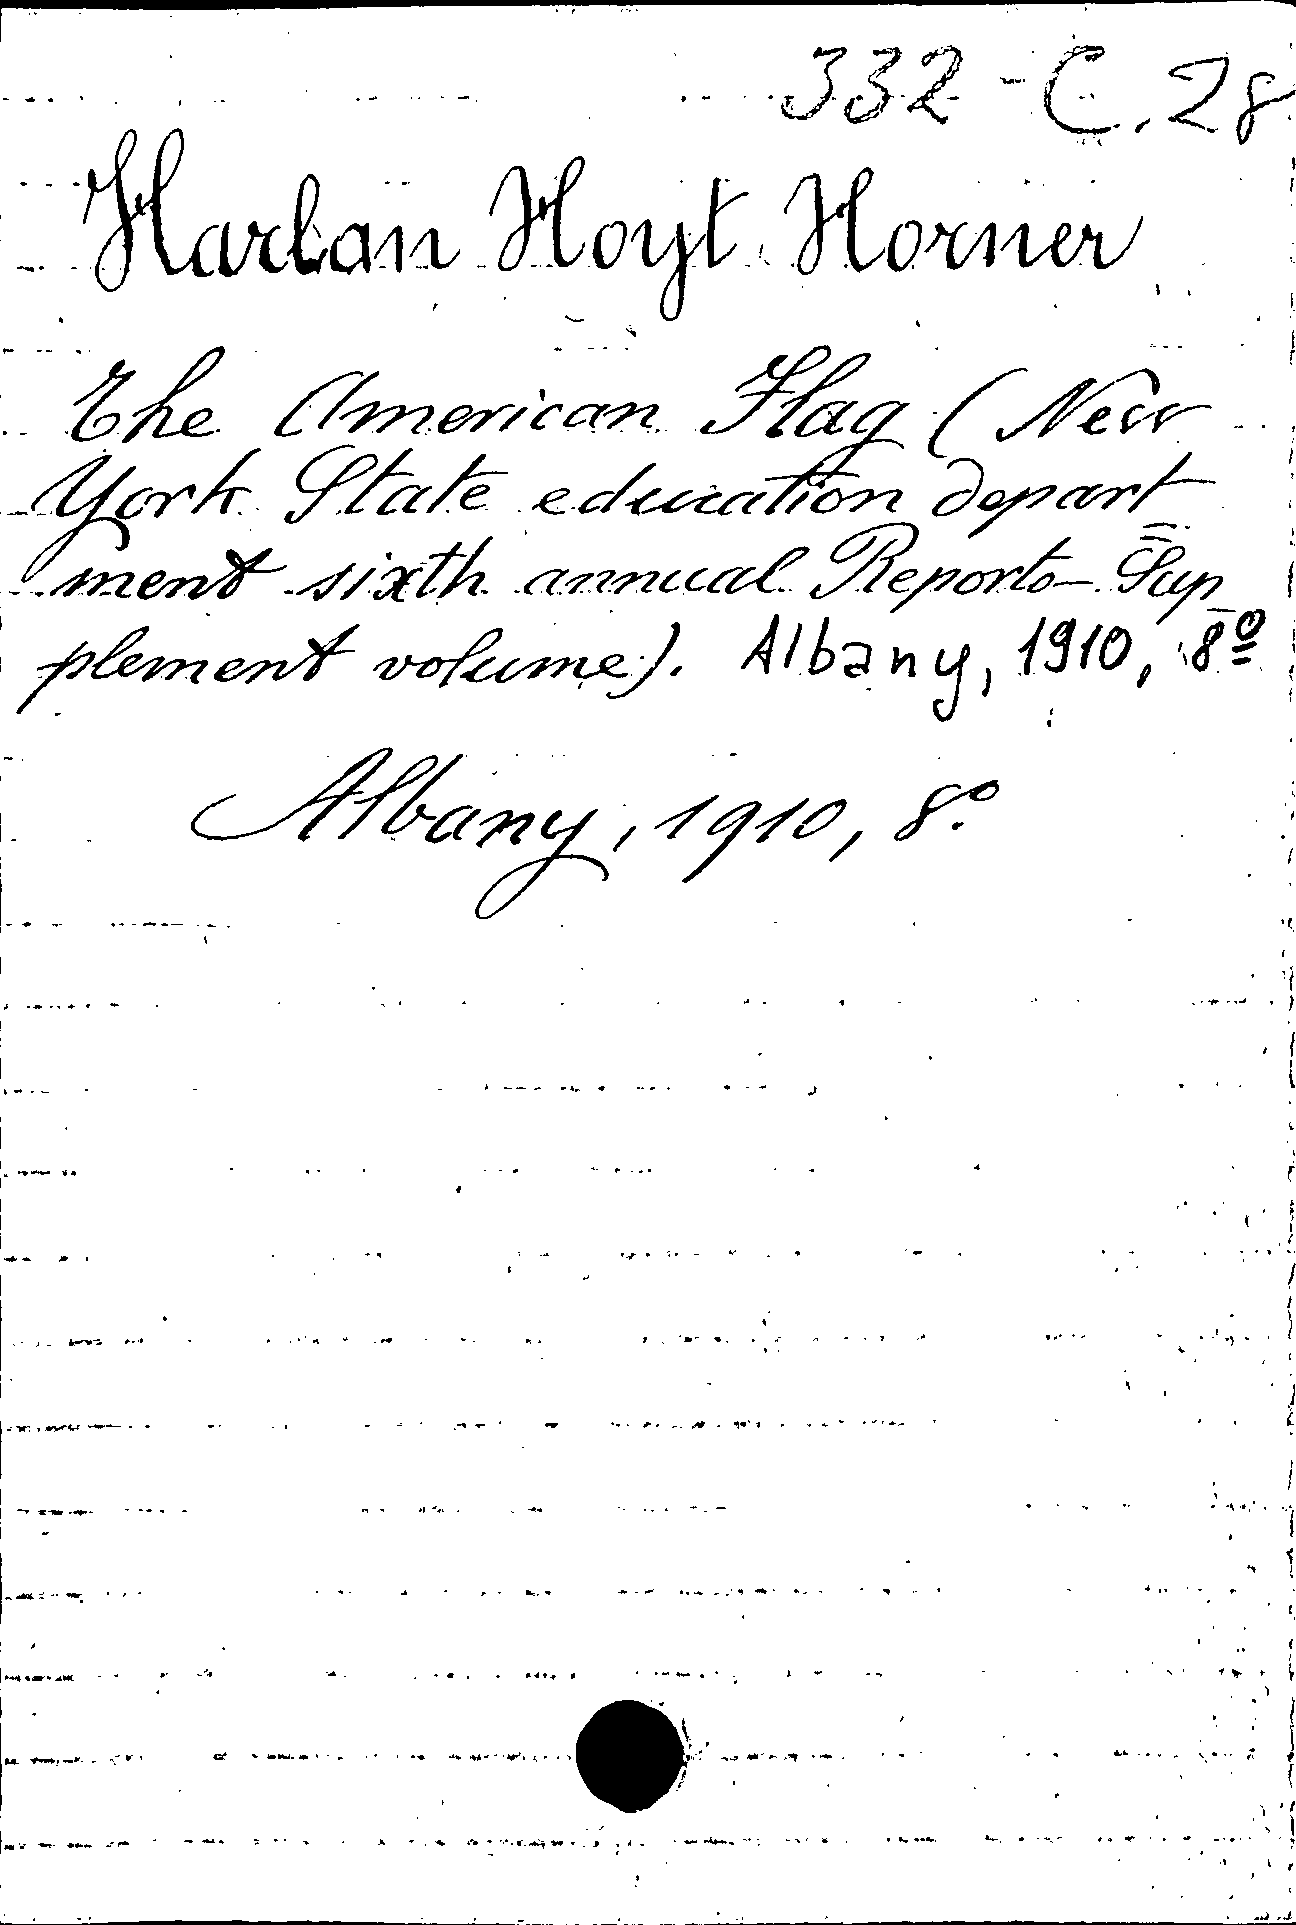 332-C.28
Harlan Hoyt Horner
The American Flag (New
York State education depart
=ment sixth annual Report - Sup
plement volume). Albany, 1910, 8º
Albany, 1910, 8º